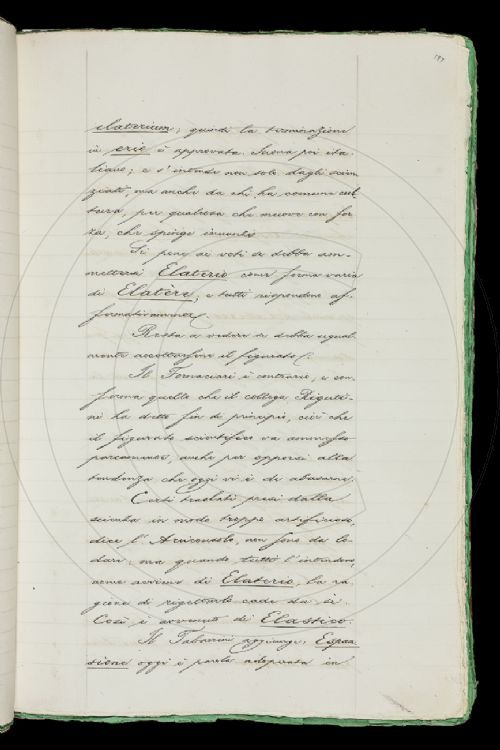 197
elaterium; quindi la terminazione
in erio è approvata. Suona poi ita-
liano; e s'intende non solo dagli scien-
ziati, ma anche da chi ha comune cul-
tura per qualcosa che muove con for-
za, che spinge innanzi.
Si pone ai voti se debba am-
mettersi Elaterio come forma varia
di Elatère; e tutti rispondono af-
fermativamente.
Resta a vedere se debba egual-
mente accogliersi il figurato.
Il Fornaciari è contrario, e con-
ferma quello che il collega Riguti-
ni ha detto fin da principio, cioè che
il figurato scientifico va ammesso
parcamente, anche per opporsi alla
tendenza che oggi vi è di abusarne.
Certi traslati presi dalla
scienza in modo troppo artifizioso,
dice l'Arciconsolo, non sono da lo-
darsi; ma quando tutti l'intendono,
come avviene di Elaterio, la ra-
gione di rigettarlo cade da sè.
Così è avvenuto di Elastico.
Il Tabarrini aggiunge: Espan-
sione oggi è parola adoperata in